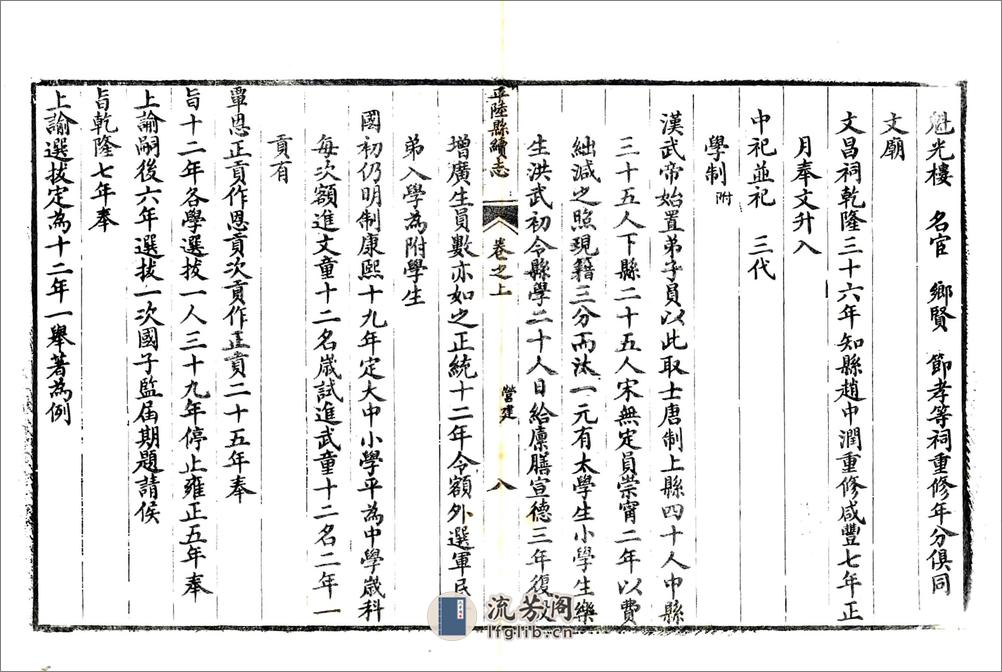 魁光樓　名宦　鄉賢　節孝等祠重修年分俱同
文廟
文昌祠乾隆三十六年知縣趙中潤重修咸豐七年正
月奉文升入
中祀並祀　三代
學制附
漢武帝始置弟子員以此取士唐制上縣四十人中縣
三十五人下縣二十五人宋無定員崇甯二年以費
絀減之照現籍三分而汰一元有太學生小學生樂
生洪武初令縣學二十人日給廩膳宣德三年復
增廣生員數亦如之正統十二年令額外選軍民
弟入學為附學生
平陸縣續志　卷之上　營建　八
國初仍明制康熙十九年定大中小學平為中學歲科
每次額進文童十二名歲試進武童十二名二年一
貢有
覃恩正貢作恩貢次貢作正貢二十五年奉
旨十二年各學選拔一人三十九年停止雍正五年奉
上諭嗣後六年選拔一次國子監屆期題請候
旨乾隆七年奉
上諭選拔定為十二年一舉著為例
流芳閣
lfglib.cn